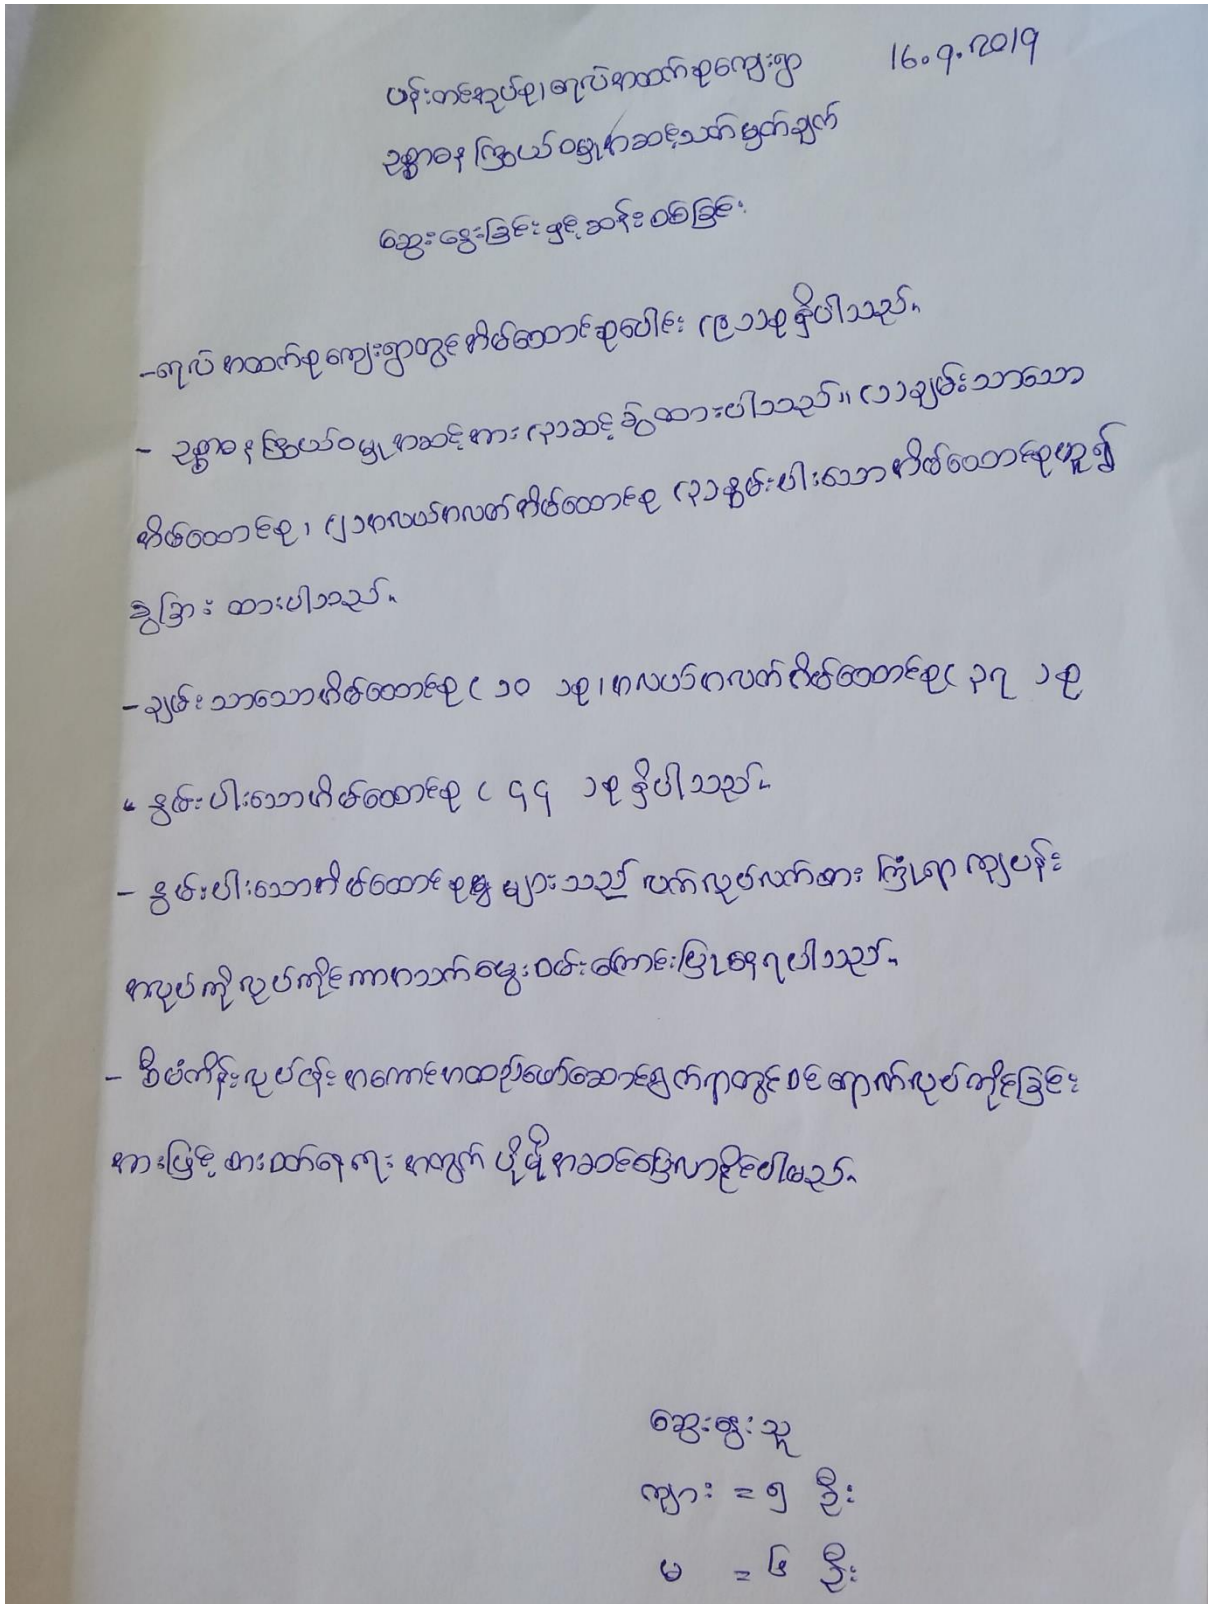 16.9.2019
ပန်းတင်အုပ်စု၊ ရေလဲအထက်စုကျေးရွာ
ဥစ္စာဓန ကြွယ်ဝမှုအဆင့်သတ်မှတ်ချက်
ဆွေးနွေးခြင်းနှင့်ဆန်းစစ်ခြင်း
အထက်စုကျေးရွာတွင်အိမ်ထောင်စုပေါင်း (၉၁)စုရှိပါသည်။
- ဥစ္စာဓနကြွယ်ဝမှုအဆင့်အား (၃)ဆင့်ခွဲထားပါသည်။ (၁)ချမ်းသာသော
အိမ်ထောင်စု၊ (၂)အလယ်အလတ်အိမ်ထောင်စု (၃)နွမ်းပါးသောအိမ်ထောင်စုဟူ၍
ခွဲခြားထားပါသည်။
- ချမ်းသာသောအိမ်ထောင်စု ( ၁၀ )စု၊ အလယ်အလတ်အိမ်ထောင်စု( ၃၇ )စု
" နွမ်းပါးသောအိမ်ထောင်စု ( ၄၄ )စုရှိပါသည်။
- နွမ်းပါးသောအိမ်ထောင်စု များသည် လက်လုပ်လက်စား ကြုံရာကျပန်း
အလုပ်ကိုလုပ်ကိုင်ကာအသက်မွေးဝမ်းကြောင်းပြုနေရပါသည်။
- စီမံကိန်းလုပ်ငန်းအကောင်အထည်ဖော်ဆောင်ရွက်ရာတွင်ဝင်ရောက်လုပ်ကိုင်ခြင်း
အားဖြင့်စားဝတ်နေရေးအတွက် ပိုမိုအဆင်ပြေလာနိုင်ပါမည်။
ဆွေးနွေးသူ
ကျား = ၅ ဦး
မ = ၆ ဦး